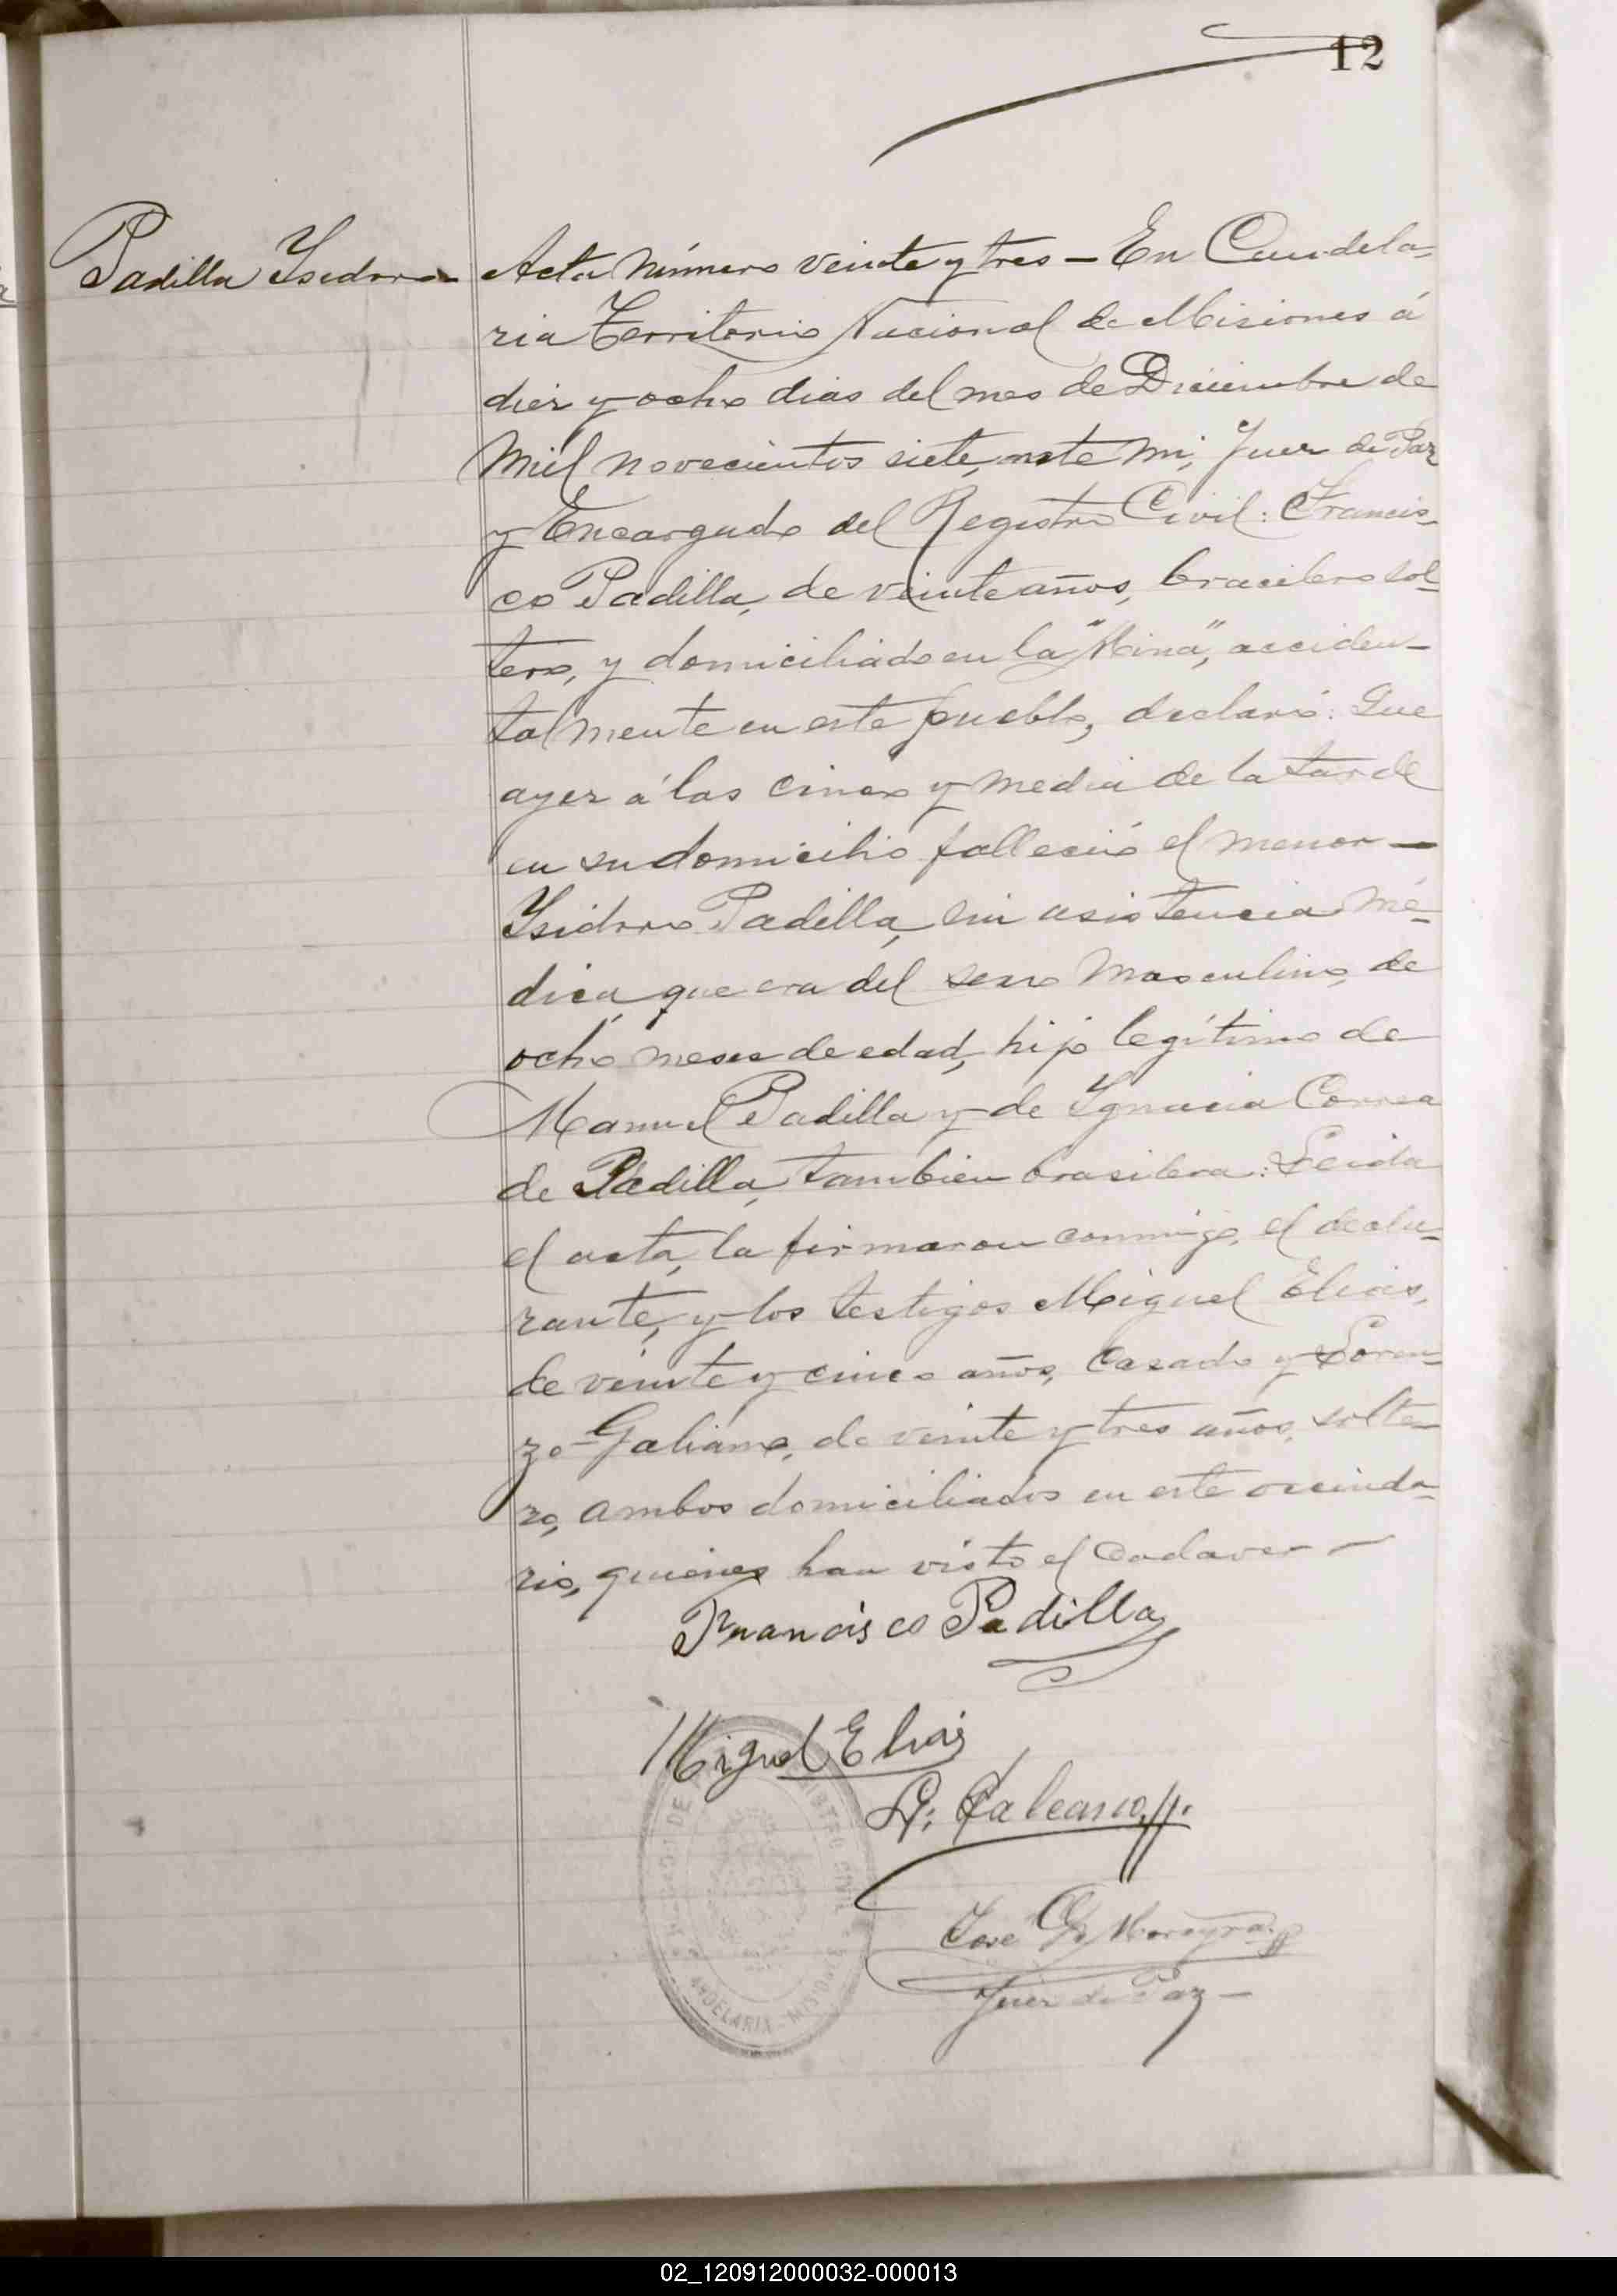 12
Padilla Ysidoro
Acta número veinte y tres – En Candela-
ria Territorio Nacional de Misiones á
diez y ocho dias del mes de Diciembre de
mil novecientos siete, ante mi, Juez de Paz
y Encargado del Registro Civil: Francis-
co Padilla, de veinte años, brasilero sol-
tero, y domiciliado en la "Mina", acciden-
talmente en este pueblo, declaró: Que
ayer á las cinco y media de la tarde
en su domicilio falleció el menor —
Ysidoro Padilla, sin asistencia mé-
dica, que era del sexo masculino, de
ocho meses de edad, hijo legítimo de
Manuel Padilla y de Ygnacia Correa
de Padilla, tambien brasilera: Leida
el acta, la firmaron conmigo, el decla-
rante, y los testigos Miguel Elias,
de veinte y cinco años, casado y Loren-
zo Galiano, de veinte y tres años, solte-
ro, ambos domiciliados en este vecinda-
rio, quienes han visto el cadaver –
Francisco Padilla
Miguel Elias
L. Galeano
José Moreyra
Juez de Paz –
CANDELARIA - MISIONES
REGISTRO CIVIL
02_120912000032-000013